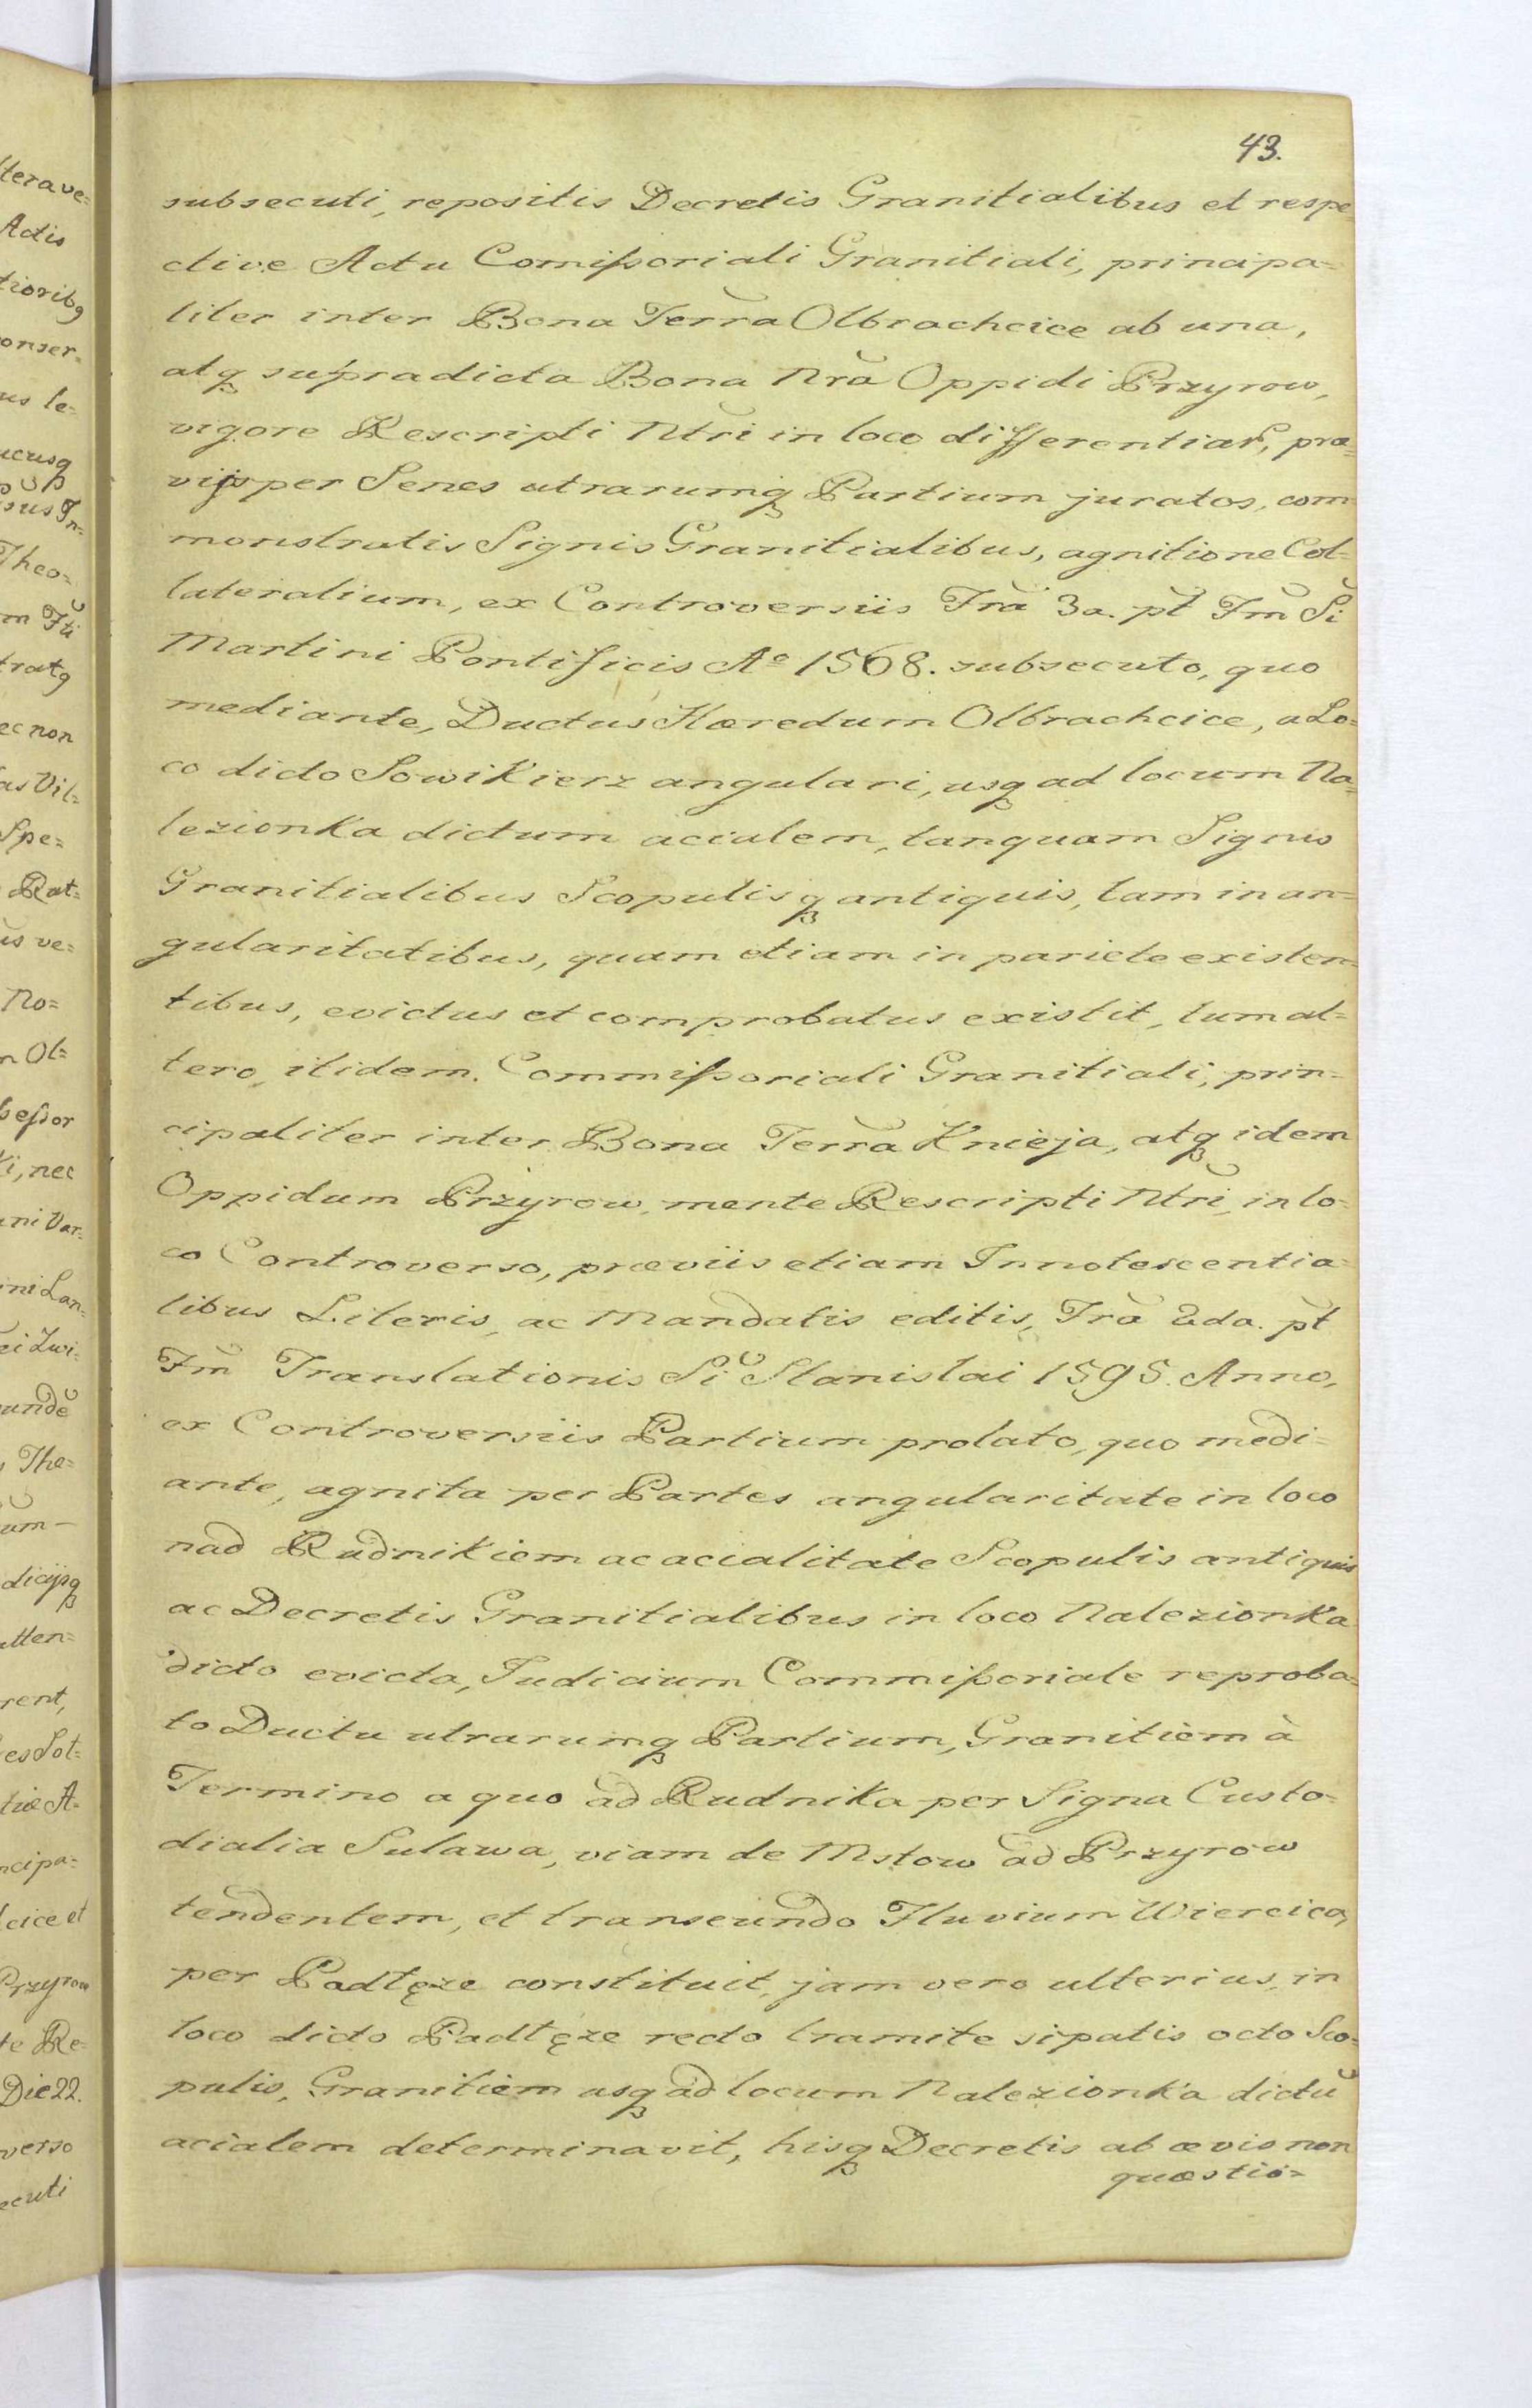 43.
subsecuti, repositis Decretis Granitialibus et respe=
ctive Actu Comißoriali Granitiali, principa=
liter inter Bona Terra̅ Olbrachcice ab una,
atq supradicta Bona Nra̅ Oppidi Przyrow,
vigore Rescripti Ntri̅ in loco differentiar, præ=
vijs per Senes utrarumq Partium juratos, com=
monstratis Signis Granitialibus, agnitione Col=
lateralium, ex Controversiis Fra̅ 3a. pt̅ Fm̅ Si̅
Martini Pontificis Ao 1568. subsecuto, quo
mediante, Ductus Hæredum Olbrachcice, a Lo=
co dicto Sowikierz angulari, usq ad locum Na=
lezionka dictum acialem, tanquam Signis
Granitialibus Scopulisq antiquis, tam in an=
gularitatibus, quam etiam in pariete existen=
tibus, evictus et comprobatus existit, tum al=
tero, itidem. Commißoriali Granitiali, prin=
cipaliter inter Bona Terra̅ Knieja, atq idem
Oppidum Przyrow, mente Rescripti Ntri̅, in lo=
co Controverso, præviis etiam Innotescentia=
libus Literis, ac Mandatis editis, Fra̅ 2da. pt̅
Fm̅ Translationis Si̅ Stanislai 1595. Anno,
ex Controversiis Partium prolato, quo medi=
ante, agnita per Partes angularitate in loco
nad Rudnikiem ac acialitate Scopulis antiquis
ac Decretis Granitialibus in loco Nalezionka
dicto evicta, Judicium Commißoriale reproba=
to Ductu utrarumq Partium, Granitiem à
Termino a quo ad Rudnika per Signa Custo=
dialia Sulawa, viam de Mstow ad Przyrow
tendentem, et transeundo Fluvium Wiercica,
per Padłęze constituit, jam vero ulterius, in
loco dicto Padłęze recto tramite sipatis octo Sco=
pulis, Granitiem usq ad locum Nalezionka dictu̅
acialem determinavit, hisq Decretis ab ævis non
quæstio=